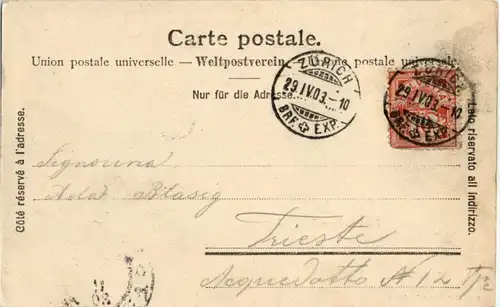 Carte postale.
Union postale universelle — Weltpostverein. — Unione postale universale.
Nur für die Adresse.
ZÜRICH
29.IV.03.-10
BRF. EXP.
ZÜRICH
29.IV.03.-10
BRF. EXP.
Côté réservé à l'adresse.
Lato riservato all indirizzo.
Signorina
Adel Blasig
Trieste
Acquedotto N 12